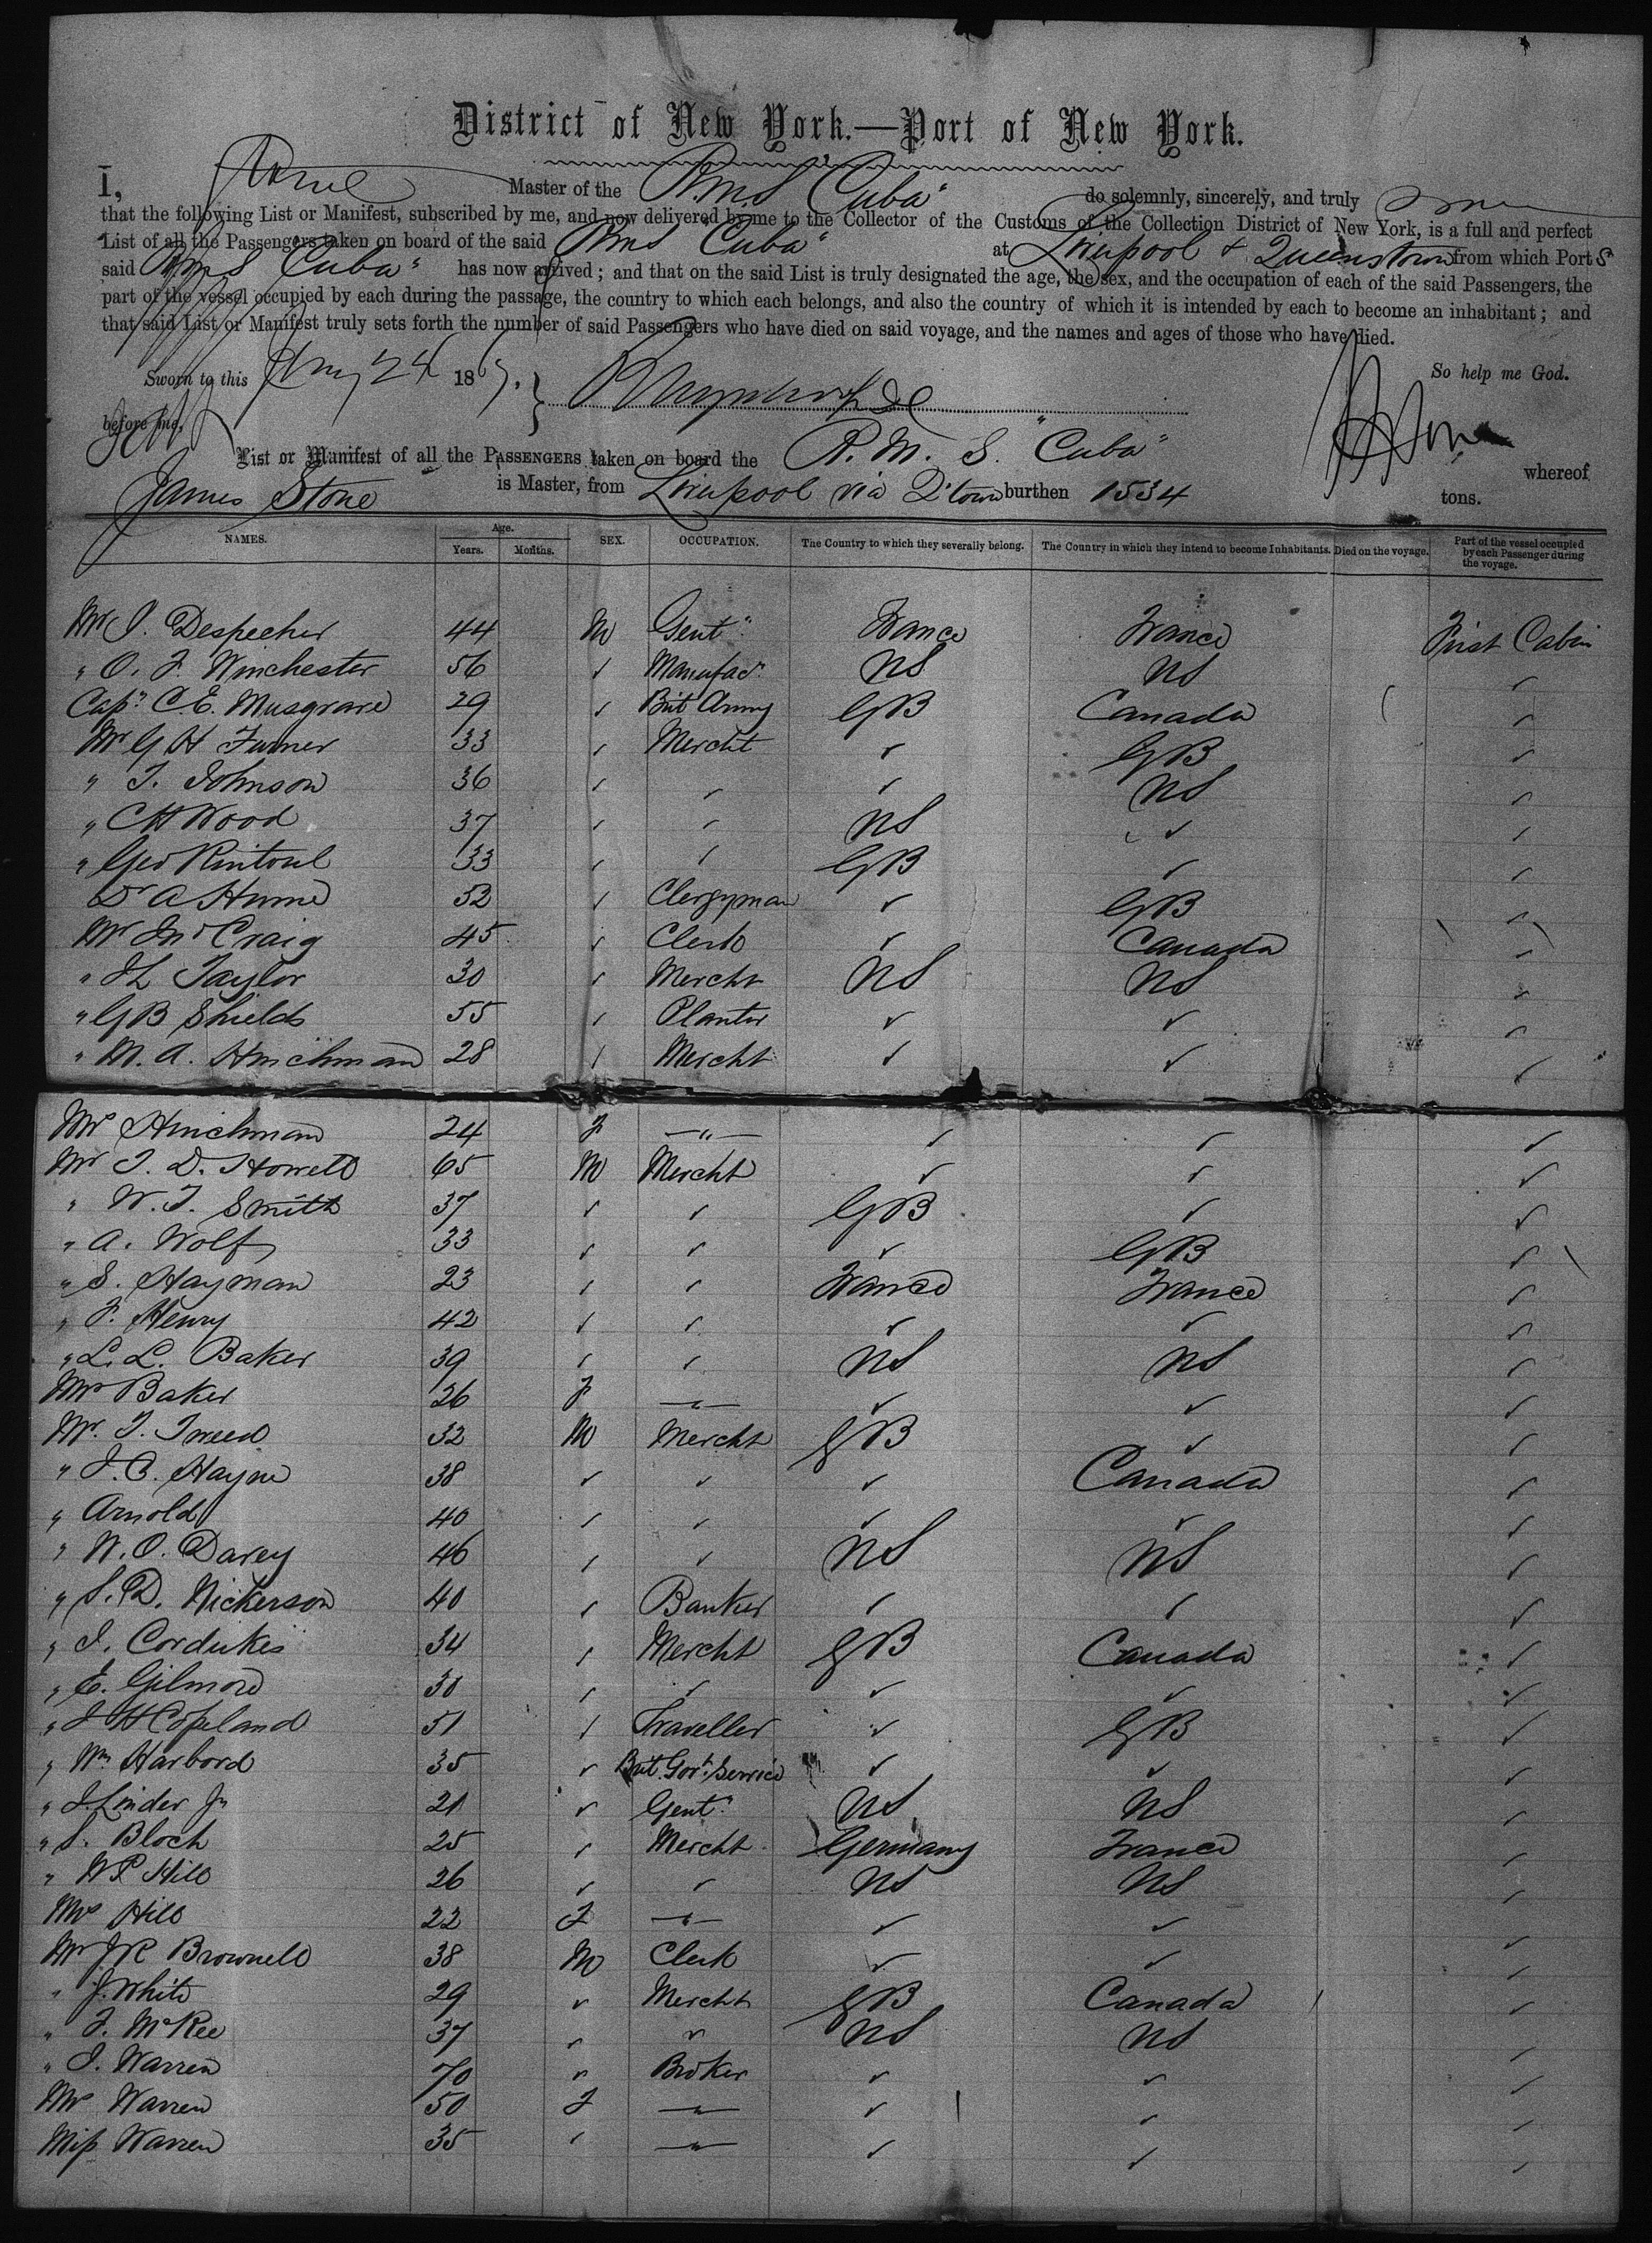 District of New York.—Port of New York.
I, Master of the R.M.S "Cuba" do solemnly, sincerely, and truly
that the following List or Manifest, subscribed by me, and now delivered by me to the Collector of the Customs of the Collection District of New York, is a full and perfect
List of all the Passengers taken on board of the said RMS "Cuba" at Liverpool & Queenstown from which Port S
said RMS "Cuba" has now arrived; and that on the said List is truly designated the age, the sex, and the occupation of each of the said Passengers, the
part of the vessel occupied by each during the passage, the country to which each belongs, and also the country of which it is intended by each to become an inhabitant; and
that said List or Manifest truly sets forth the number of said Passengers who have died on said voyage, and the names and ages of those who have died.
Sworn to this 24 186 So help me God.
before me,
List or Manifest of all the PASSENGERS taken on board the R. M. S. "Cuba" whereof
James Stone is Master, from Liverpool via Q'town burthen 1534 tons.
NAMES. Age. Years. Months. SEX. OCCUPATION. The Country to which they severally belong. The Country in which they intend to become Inhabitants. Died on the voyage. Part of the vessel occupied by each Passenger during the voyage.
Mr J. Despecher 44 M Gent" France France First Cabin
" O. F. Winchester 56 ✓ Manufac" US US ✓
Cap" C. E. Musgrave 29 ✓ Brit Army GB Canada ✓
Mr G H Turner 33 ✓ Mercht ✓ GB ✓
" T. Johnson 36 ✓ ✓ ✓ US ✓
" C H Wood 37 ✓ ✓ US ✓ ✓
" Geo Rintoul 33 ✓ ✓ GB ✓ ✓
Dr A Hume 52 ✓ Clergyman ✓ GB ✓
Mr Jno Craig 45 ✓ Clerk ✓ Canada ✓
" J L Taylor 30 ✓ Mercht US US ✓
" G B Shields 55 ✓ Planter ✓ ✓ ✓
" M. A. Hinchman 28 ✓ Mercht ✓ ✓ ✓
Mrs Hinchman 24 F —"— ✓ ✓ ✓
Mr T. D. Howell 65 M Mercht ✓ ✓ ✓
" W. T. Smith 37 ✓ ✓ GB ✓ ✓
" A. Wolf 33 ✓ ✓ ✓ GB ✓
" S. Hayman 23 ✓ ✓ France France ✓
" F. Henry 42 ✓ ✓ ✓ ✓ ✓
" L. L. Baker 39 ✓ ✓ US US ✓
Mrs Baker 26 F —"— ✓ ✓ ✓
Mr. T. Tweed 32 M Mercht GB ✓ ✓
" J. C. Hayne 38 ✓ ✓ ✓ Canada ✓
" Arnold 40 ✓ ✓ ✓ ✓ ✓
" W. O. Davey 46 ✓ ✓ US US ✓
" S. D. Nickerson 40 ✓ Banker ✓ ✓ ✓
" J. Cordukes 34 ✓ Mercht GB Canada ✓
" E. Gilmore 30 ✓ ✓ ✓ ✓ ✓
" J H Copeland 51 ✓ Traveller ✓ GB ✓
" Wm Harbord 35 ✓ Brit. Govt. Service ✓ ✓ ✓
" J. Linder Jr 21 ✓ Gent" US US ✓
" S. Bloch 25 ✓ Mercht Germany France ✓
" W P Hill 26 ✓ ✓ US US ✓
Mrs Hill 22 F —"— ✓ ✓ ✓
Mr J R Brownell 38 M Clerk ✓ ✓ ✓
" J. White 29 ✓ Mercht GB Canada ✓
" T. McKee 37 ✓ ✓ US US ✓
" J. Warren 70 ✓ Broker ✓ ✓ ✓
Mrs Warren 50 F —"— ✓ ✓ ✓
Miss Warren 35 ✓ —"— ✓ ✓ ✓